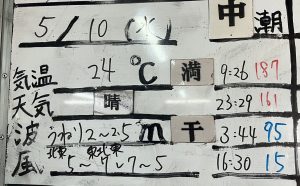 中潮
5/10(水)
気温 24℃ 満 9:26 187
天気 晴 23:29 161
波 うねり2〜2.5m 干 3:44 95
風 北東 東北東 5〜7〜7〜5 16:30 15